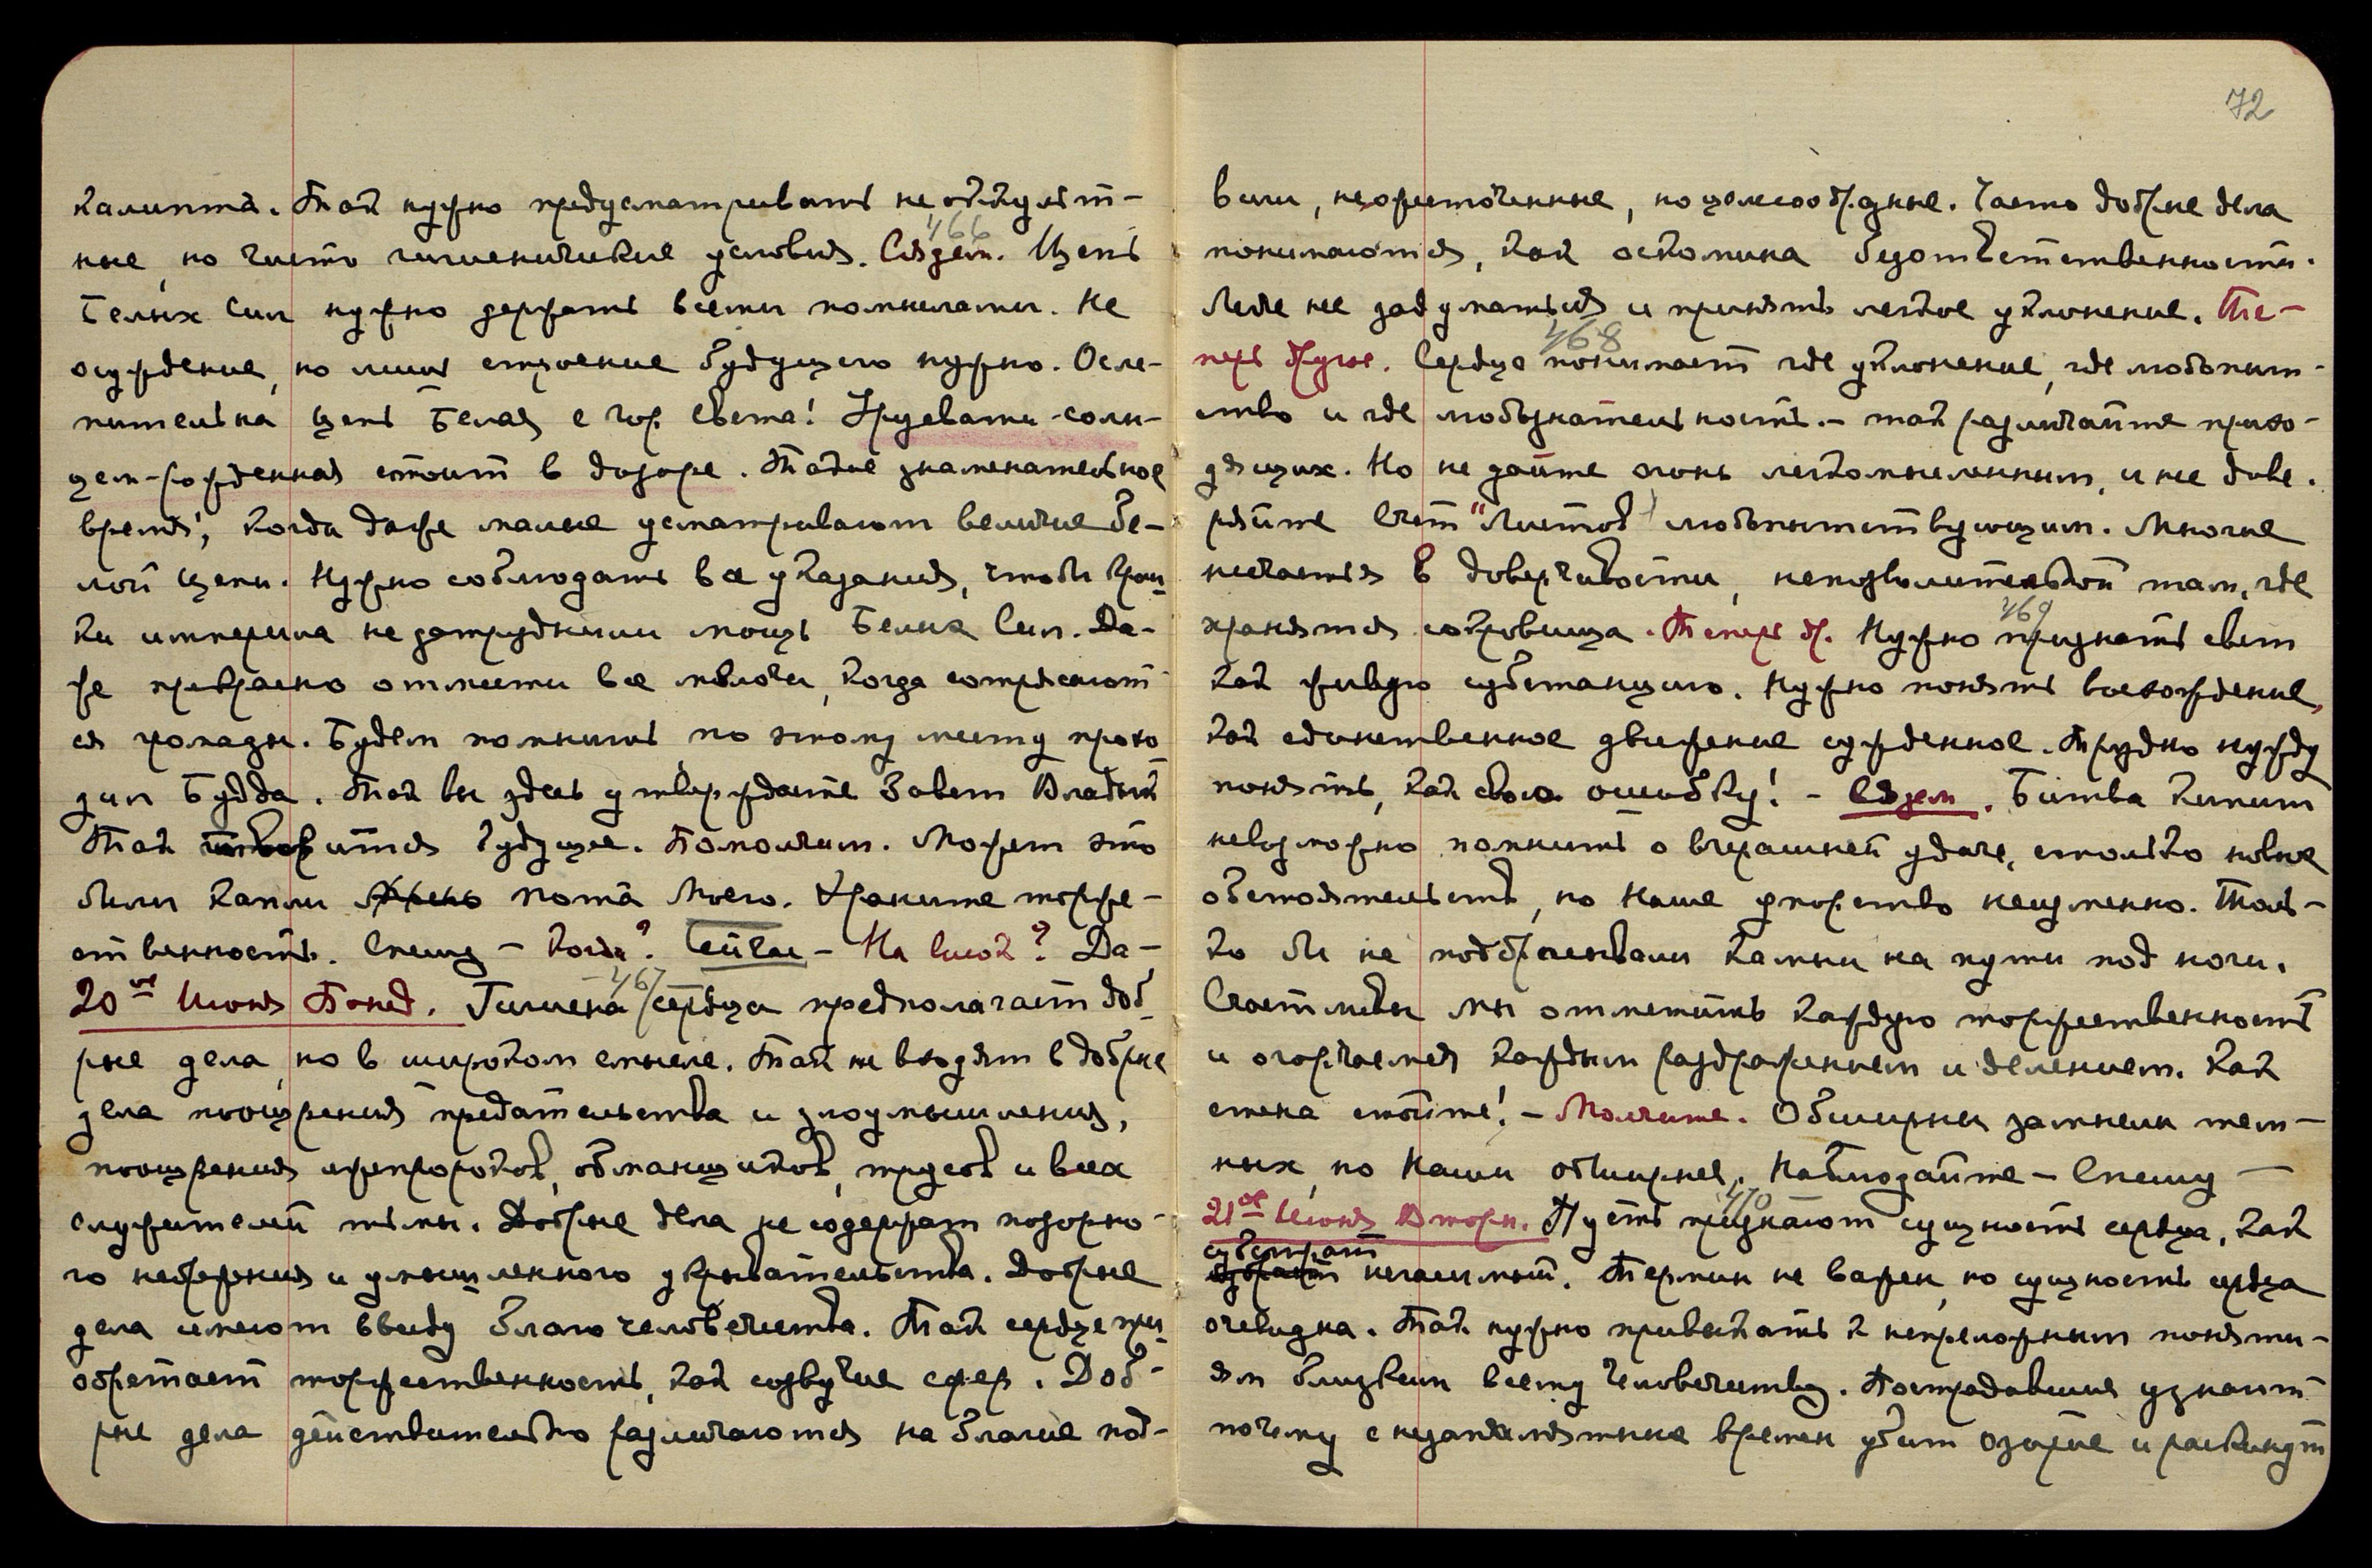 72
калипта. Так нужно предусматривать не оккульт-
ные, но чисто гигиенические условия. 466 Сядем. Цепь
Белых Сил нужно держать всеми помыслами. Не
осуждение, но лишь строение будущего нужно. Осле-
пительна цепь Белая с гор Света! Урусвати-солн-
цем-рожденная стоит в дозоре. Такое знаменательное
время, когда даже малые усматривают величие Бе-
лой Цепи. Нужно соблюдать все указания, чтобы крош
ки империла не затруднили мощь Белых Сил. Да-
же прекрасно отмести все мелочи, когда сотрясают
ся громады. Будем помнить по этому месту прохо
дил Будда. Так вы здесь утверждаете Завет Владык
Так творится будущее. Помолчим. Может это
были капли пота Моего. Храните торже-
ственность. Спешу – Когда? Сейчас – На Сиск? Да –
20ое Июня Понед. 467 Гигиена сердца предполагает доб
рые дела, но в широком смысле. Так не входят в добрые
дела поощрения предательства и злоумышления,
поощрения лжепророков, обманщиков, трусов и всех
служителей тьмы. Добрые дела не содержат позорно-
го небрежия и умышленного укрывательства. Добрые
дела имеют ввиду благо человечества. Так сердце при
обретает торжественность, как созвучие сфер. Доб-
рые дела действительно различаются на благие под-
виги, неожесточенные, но целесообразные. Часто добрые дела
понимаются, как оскомина безответственности.
Легче не задуматься и принять легкое уклонение. Те-
перь другое. 468 Сердце понимает где уклонение, где любопыт-
ство и где любознательность. – так различайте прихо-
дящих. Но не дайте огонь легкомысленным, и не дове-
ряйте Свет "Листов" любопытствующим. Многие
несчастья в доверчивости, непозволительной там, где
хранятся сокровища. Теперь др. 469 Нужно признать свет
как живую субстанцию. Нужно понять восхождение,
как единственное движение сужденное. Трудно нужду
понять, как свою ошибку! – Сядем. Битва кипит
невозможно помнить о вчерашней удаче, столько новых
обстоятельств, но Наше упорство неизменно. Толь-
ко бы не подбрасывали камни на пути под ноги.
Счастливы мы отметить каждую торжественность
и огорчаемся каждым раздражением и делением. Как
стена стойте! – Молчите. Обширны замыслы тем-
ных, но Наши обширнее. Наблюдайте – Спешу –
21ое Июня Вторн. 470 Пусть признают сущность сердца, как
субстрат
негасимый. Термин не важен, но сущность сердца
очевидна. Так нужно привыкать к непреложным поняти-
ям близким всему человечеству. Пострадавшие узнают
почему с незапамятных времен убит озарие и раскинут